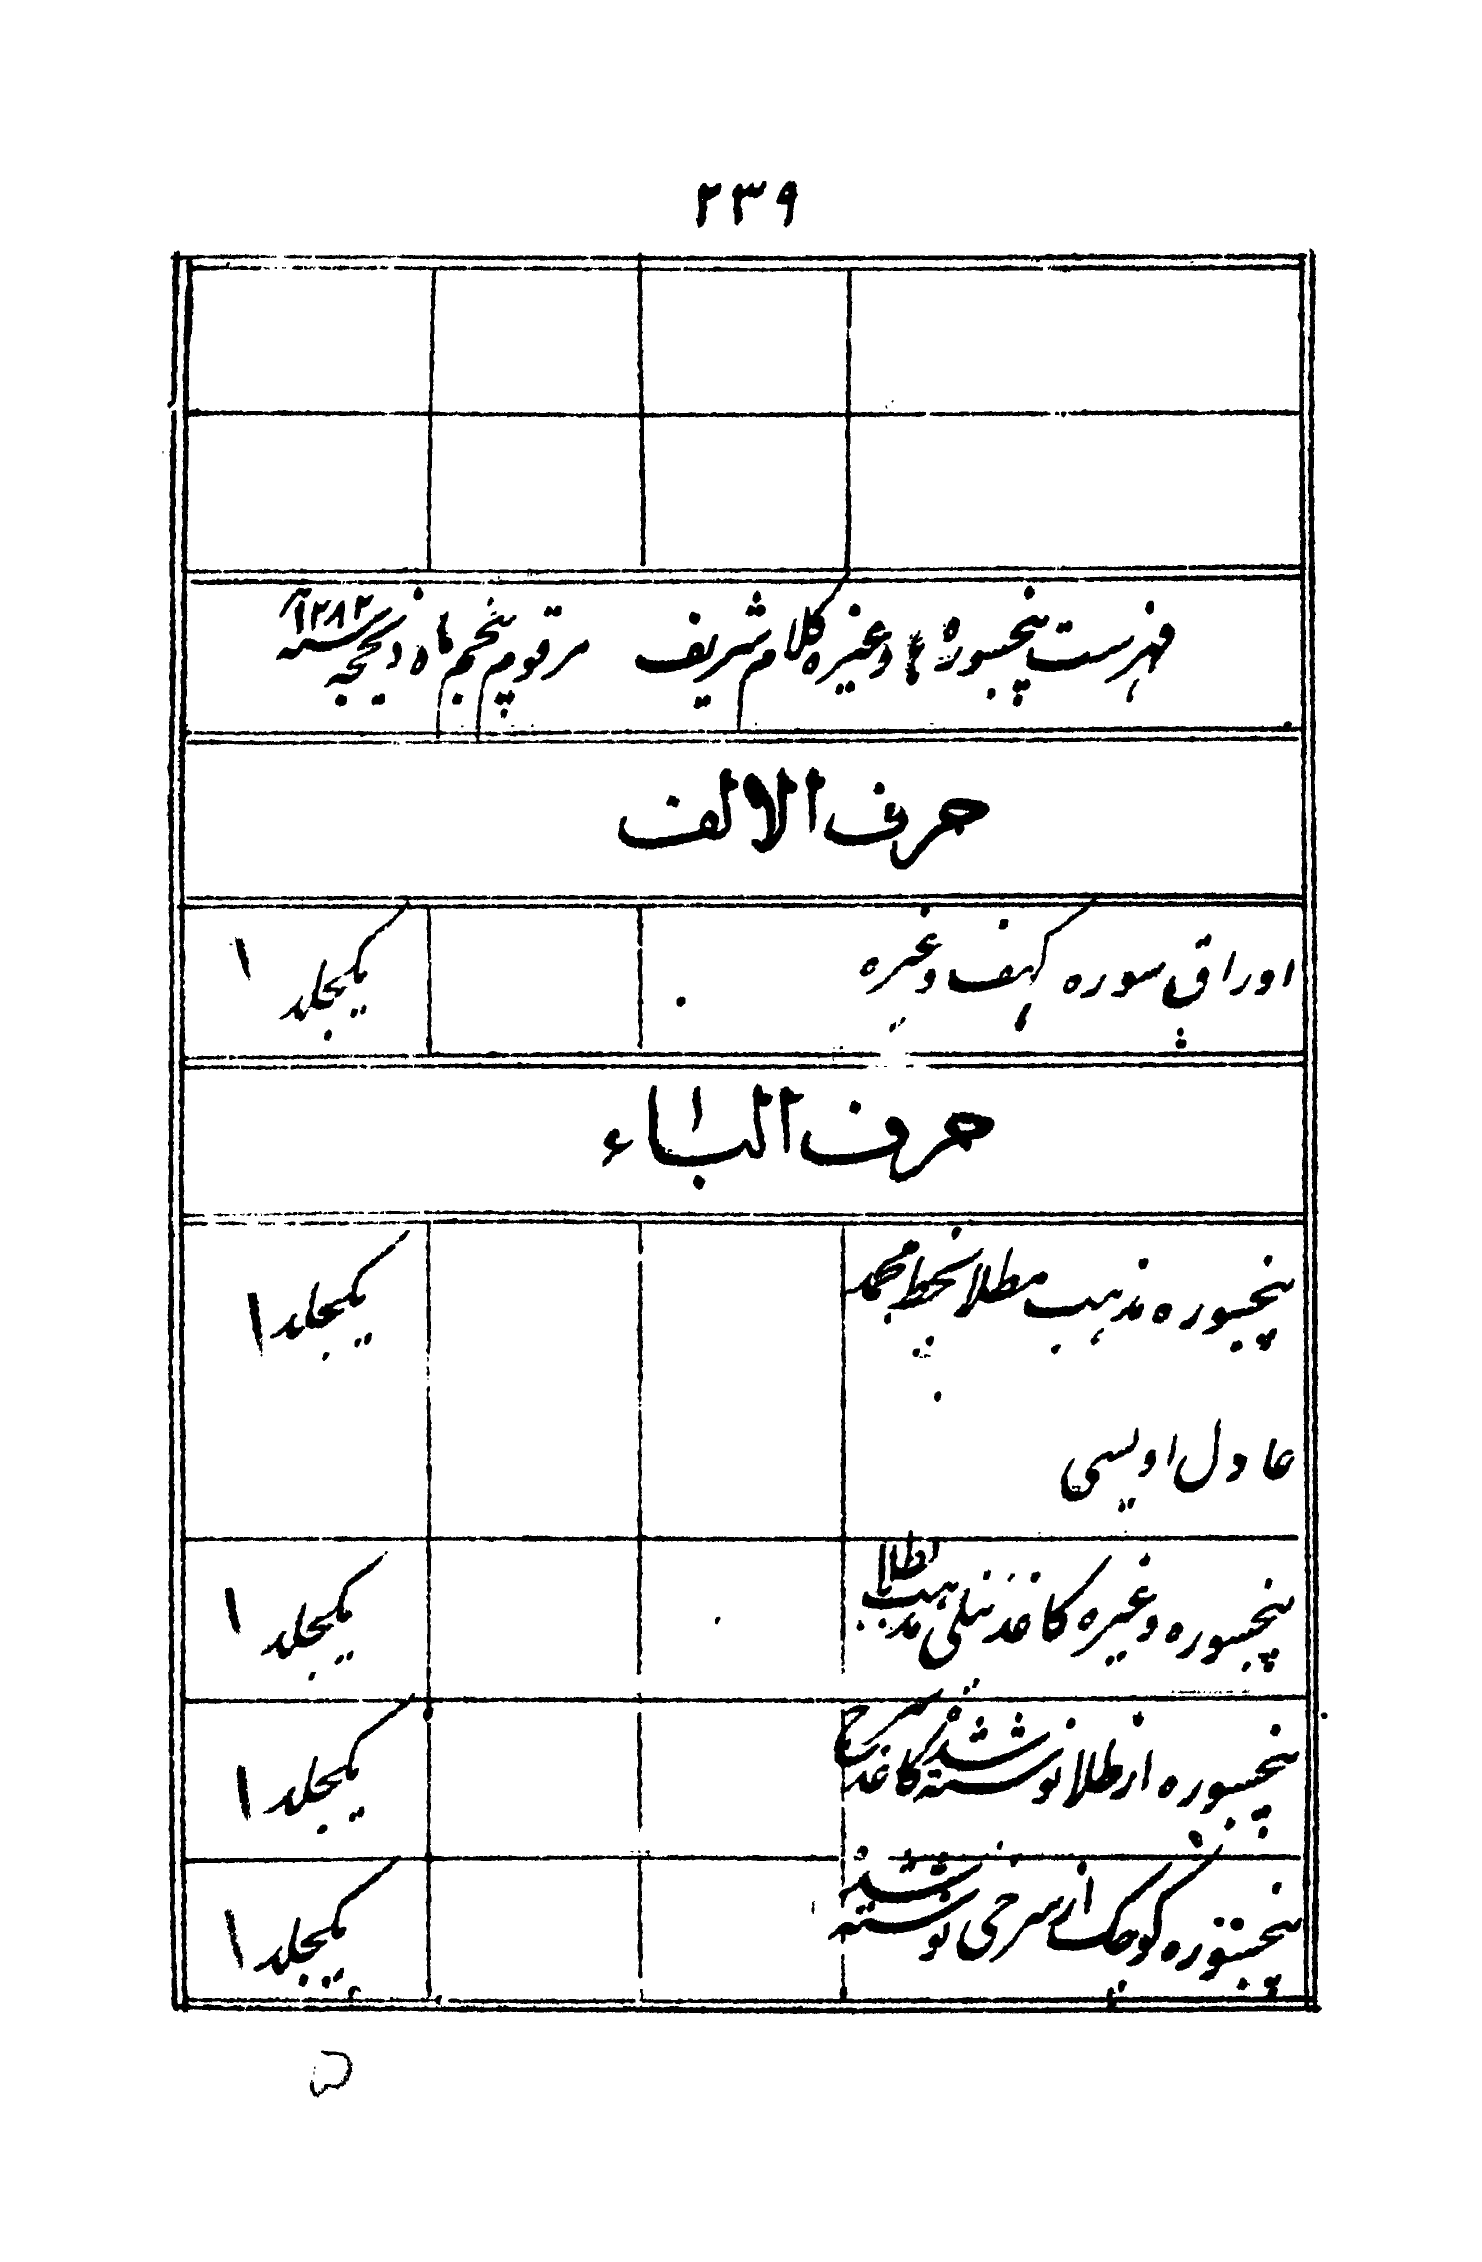 ٢٣٩
فهرست پنجسوره و غیره کلام شریف مرقوم پنجم ماه ذیحجه سنه ١٢٨٢
حرف الالف
اوراق سوره کهف و غیره یکجلد ١
حرف الباء
پنجسوره مذهب مطلا بخط محمد یکجلد ١
عادل اویسی
پنجسوره و غیره کاغذ نیلی مذهب مطلا یکجلد ١
پنجسوره از طلا نوشته شده کاغذ سرخ یکجلد ١
پنجسوره کوچک از سرخی نوشته یکجلد ١